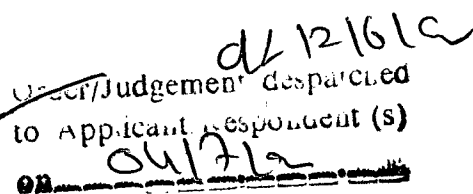 d/ 12/6/
Order/Judgement despatched
to Applicant Respondent (s)
on 04/7/